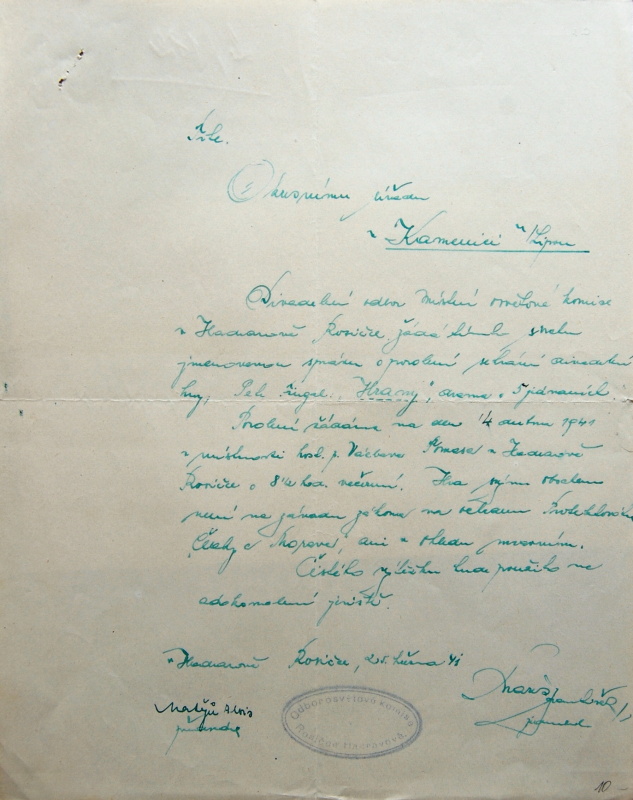 Okresnímu úřadu
v Kamenici n/Lipou
Divadelní odbor Místní osvětové komise
v Hadravově Rosičce, žádá tímto shora
jmenovanou správu o povolení sehrání divadelní
hry, "Hrany", drama o 5 jednáních.
Povolení žádáme na den 14 dubna 1941
v místnosti host. p. Václava v Hadravově
Rosičce o 8 hod. večerní. Hra svým obsahem
není na závadu zákona na ochranu Protektorátu
Čechy a Morava, ani v ohledu mravním.
Čistého výtěžku bude použito na
zdokonalení jeviště.
v Hadravově Rosičce, 25. března 41
Matějů Alois
Odbor osvětové komise
Rosička Hadravova.
10